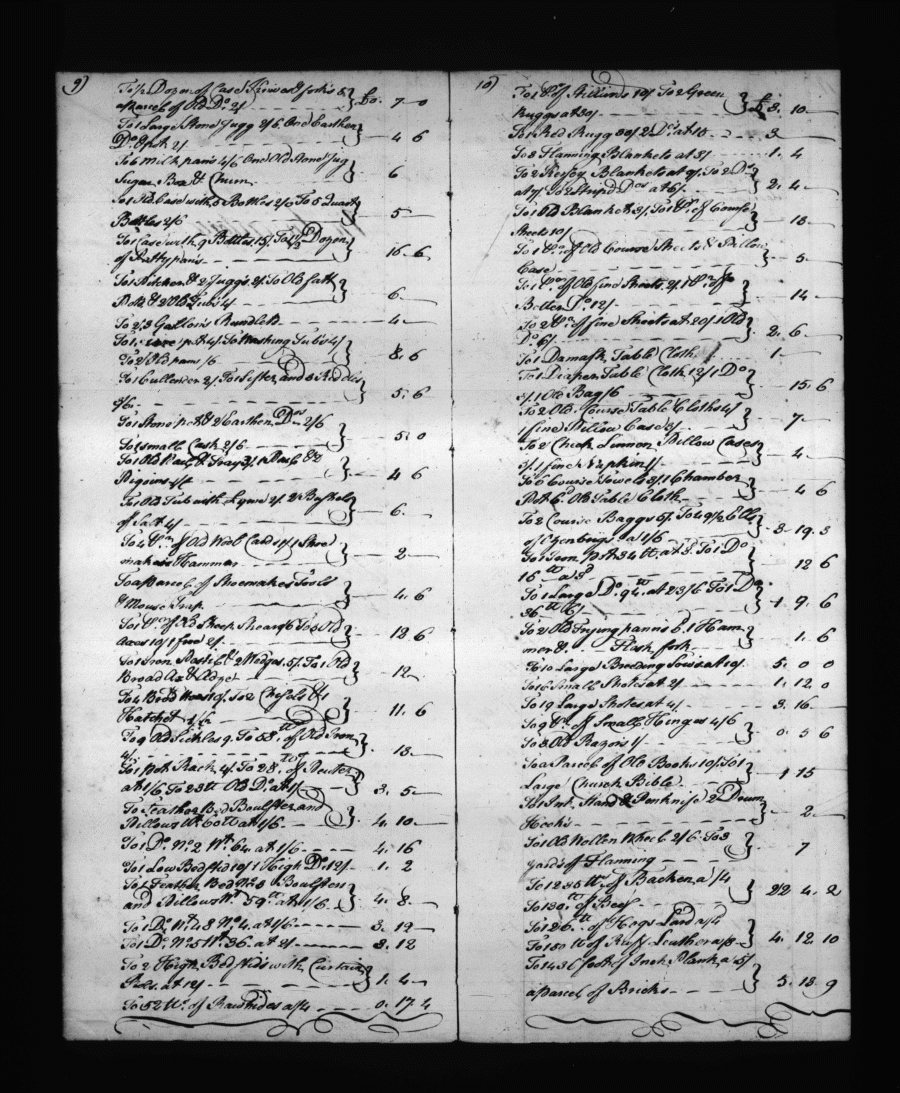 9)
To ½ Dozen of Case Knives & forks &
a parcel of Old Do 2/ } £0. 7 0
To 1 Large Stone Jugg 2/6 One Earthen
Do & pott 2/ } 4 6
To 6 Milk pans 4/6 One Old Stone Jug
Sugar Box & Churn } 6
To 1 Old Case with 5 Bottles 2/6 To 5 Quart
Bottles 2/6 } 5
To 1 Case with 9 Bottles 15/ To ½ Dozen
of Patty pans } 16 6
To 1 Pitcher & 2 Juggs 2/ To Old fatt
Potts & 2 Old Tubs 4/ } 6
To 2/3 Gallon Rundlets 4
To 1 pot 4/ To Washing Tubs 4/
To 2 Old pans /6 } 8. 6
To 1 Cullender 2/ To 1 Sifter, and 3 Riddles
3/6 } 5. 6
To 1 Stone pot & 2 Earthen Dos 2/6
To 1 small Cask 2/6 } 5. 0
To 1 Old Pail & Tray 3/ 1 Pail & 2
Piggins 1/6 } 4 6
To 1 Old Tub with Lyme 2/ 2½ Bushels
of Salt 4/ } 6
To 4 pr of Old Wool Cards 1/ 1 Shoe
makers Hammer } 2
To a parcel of Shoemakers Tools
& Mouse Trap } 4. 6
To 1 pr of Sheep Shears /6 To 3 Old
Axes 10/ 1 froe 2/ } 12 6
To 1 Iron Pestle & 2 Wedges 5/ To 1 Old
Broad Ax & Adze } 12
To 4 Broad Hoes 10/ To 2 Chisels & 1
Hatchet 1/6 } 11. 6
To 9 Old Sickles 9/ To 58 lb of Old Iron
4/ } 13
To 1 Pot Rack 4/ To 28 lb of Pewter
at 1/6 To 23 lb Old Do at 1/ } 3. 5
To Feather Bed Boulster and
Pillows Wt 60 lb at 1/6 } 4. 10
To 1 Do No 2 Wt 64 at 1/6 4. 16
To 1 Low Bedstid 10/ 1 High Do 12/ 1. 2
To 1 Feather Bed No 3 Boulster
and Pillow Wt 59 lb at 1/6 } 4. 8
To 1 Do Wt 48 No 4 at 1/6 3. 19
To 1 Do No 5 Wt 36 at 2/ 3. 12
To 2 High Bedstids with Curtain
Rods at 12/ } 1. 4
To 52 lb of Rawhides a /4 0. 17 4
10)
To 1 pr of Stilliards 10/ To 2 Green
Ruggs at 30/ } £3. 10
To 1 Red Rugg 30/ 2 Do at 15 3
To 8 Flaning Blankets at 3/ 1. 4
To 2 Kersey Blankets at 9/ To 2 Do
at 7/ To 2 Striped Dos at 6/ } 2. 4
To 1 Old Blanket 3/ To 1 pr of Course
Sheets 10/ } 13
To 1 pr of Old Course Sheets & Pillow
Case } 5
To 1 pr of Old fine Sheets 2/ 1 pr of
Better Do 12/ } 14
To 2 pr of fine Sheets at 20/ 1 Old
Do 6/ } 2. 6
To 1 Damask Table Cloth 1
To 1 Diaper Table Cloth 12/ 1 Do
3/ 1 Old Bag /6 } 15. 6
To 2 Old Course Table Cloths 4/
1 fine Pillow Case 3/ } 7
To 2 Check Linnon Pillow Cases
3/ 1 fine Napkin 1/ } 4
To 6 Course Towels 3/ 1 Chamber
Pot & Old Table Cloth } 4 6
To 2 Course Baggs 5/ To 49½ Ells
of Ozenbrigs a 1/6 } 3. 19. 3
To 1 Iron Pott 34 lb at 3d To 1 Do
16 lb a 3d } 12 6
To 1 Large Do 94 lb at 23/6 To 1 Do
36 lb 6/ } 1. 9. 6
To 2 Old Frying panns & 1 Ham
mer & 1 Flesh fork } 1. 6
To 10 Large Breeding Sows at 10/ 5. 0 0
To 16 Small Shotes at 2/ 1. 12. 0
To 19 Large Shotes at 4/ 3. 16
To 9 pr of Small Hinges 4/6
To 3 Old Razors 1/ } 0. 5 6
To a Parcel of Old Books 10/ To 1
Large Church Bible } 1 15
To 1 Ink Stand & Penknife 2 Drawn
Hooks } 2
To 1 Old Wollen Wheel 2/6 To 3
yards of Flanning } 7
To 1235 lb of Backen a /4
To 130 lb of Beef } 22 4. 2
To 126 lb of Hogs Lard a /4
To 50 lb of Ruff Leather a /8 } 4. 12. 10
To 1436 foot of Inch Plank a 5/
a Parcel of Bricks } 5. 18. 9